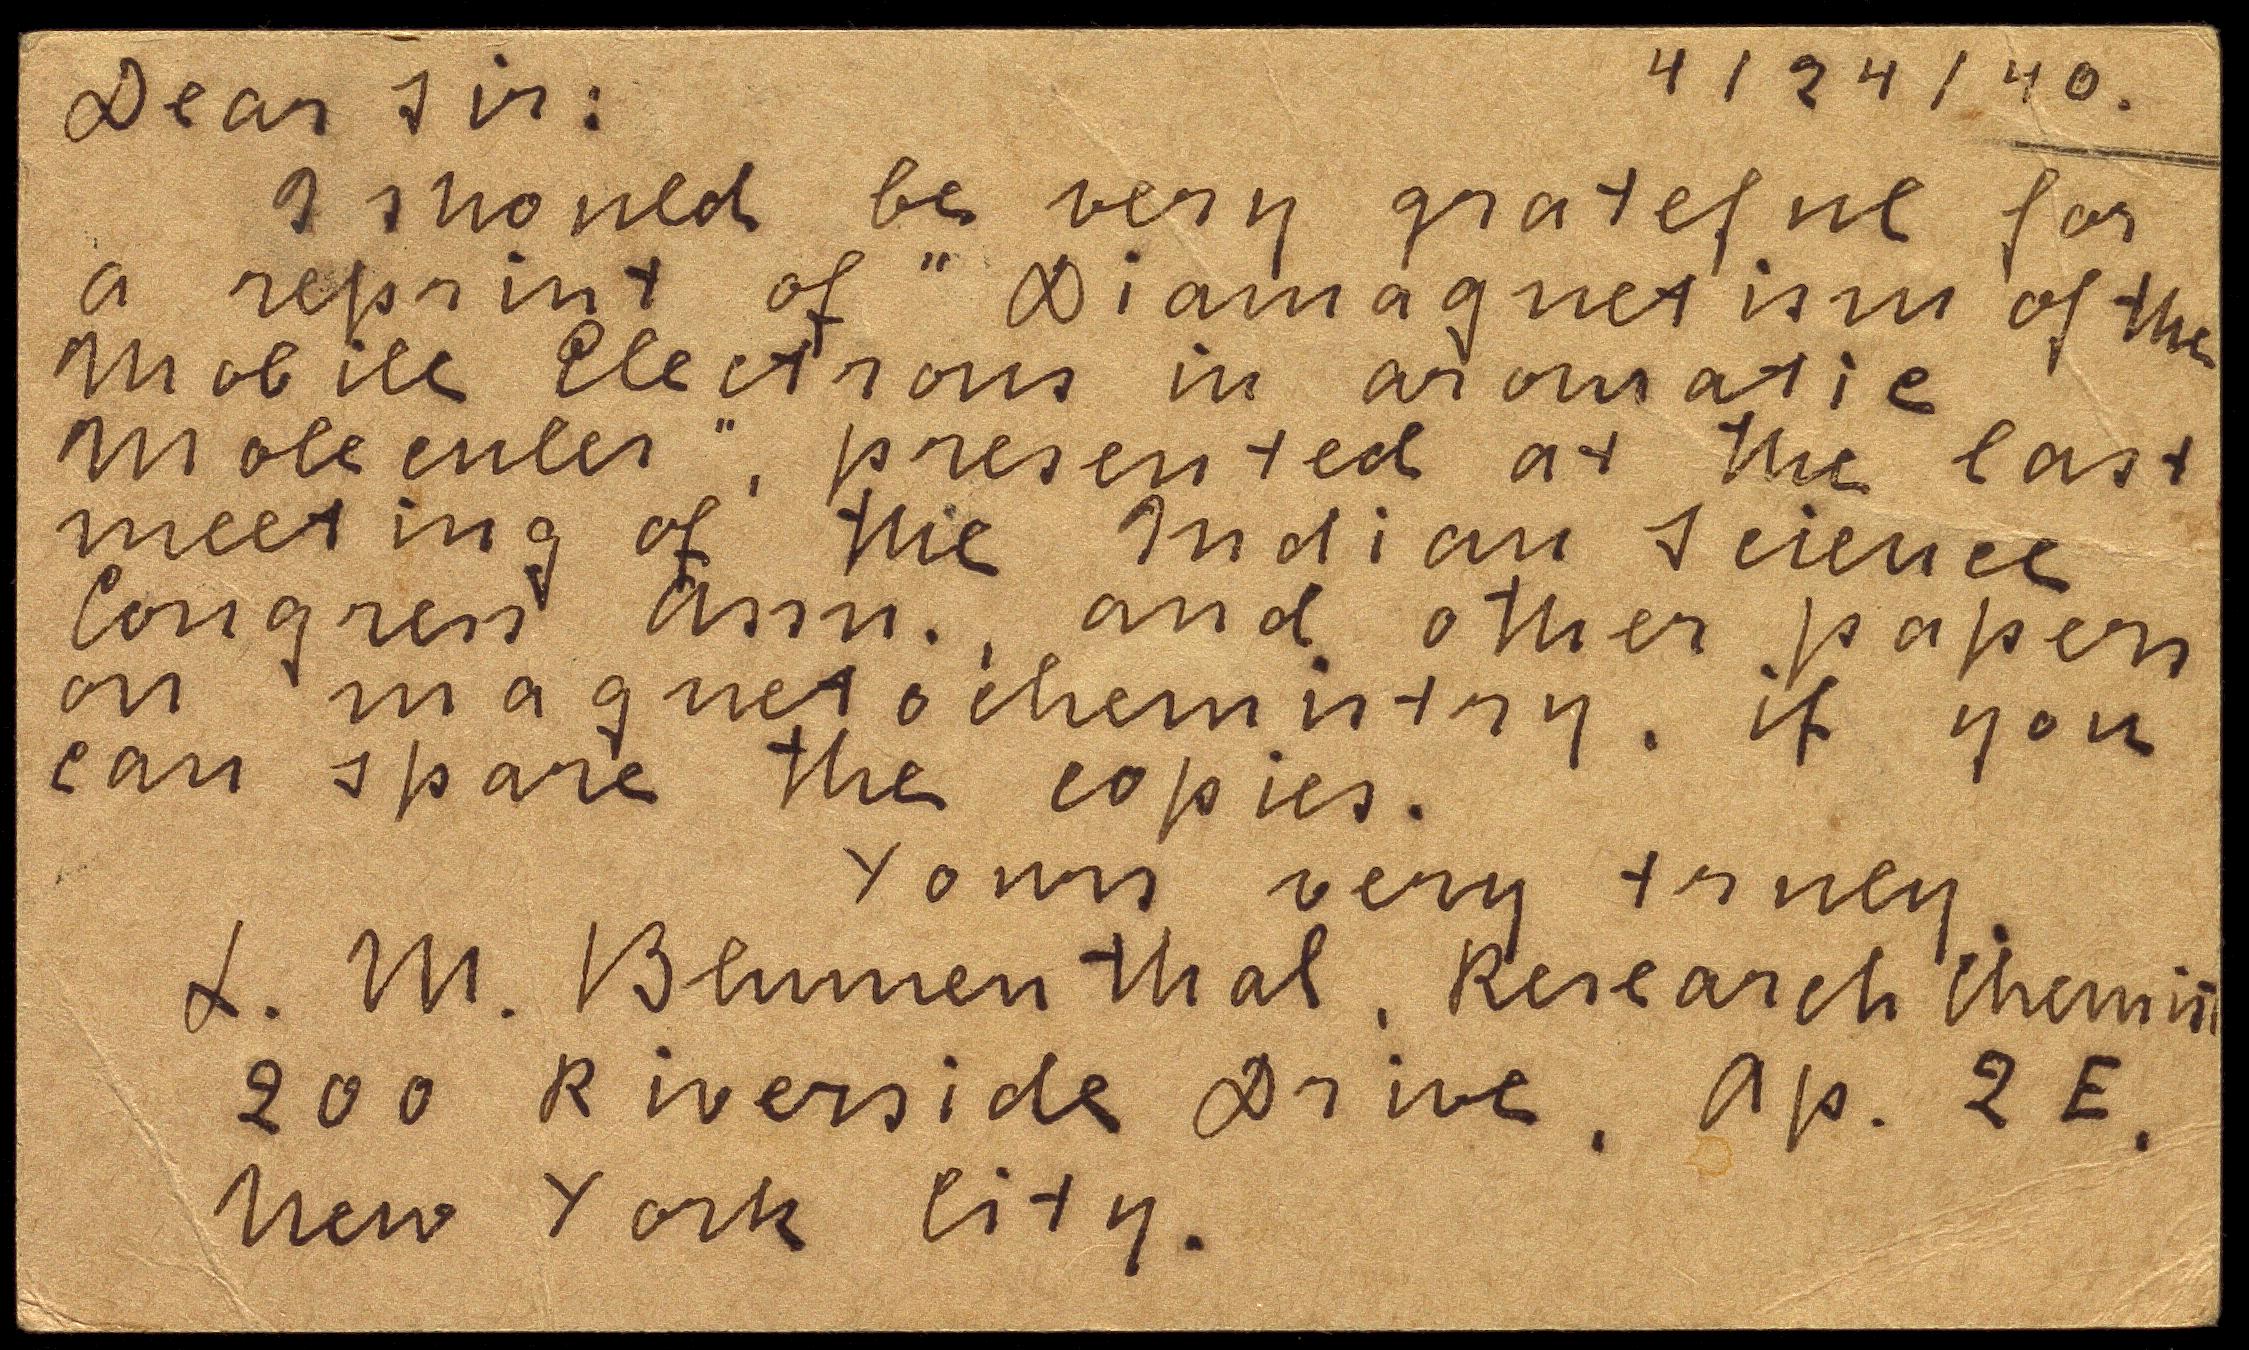 4/24/40.
Dear Sir:
I should be very grateful for
a reprint of "Diamagnetism of the
Mobile Electrons in aromatic
Molecules", presented at the last
meeting of the Indian Science
Congress Assn., and other papers
on magnetochemistry, if you
can spare the copies.
Yours very truly,
L. M. Blumenthal, Research Chemist
200 Riverside Drive, Ap. 2E,
New York City.